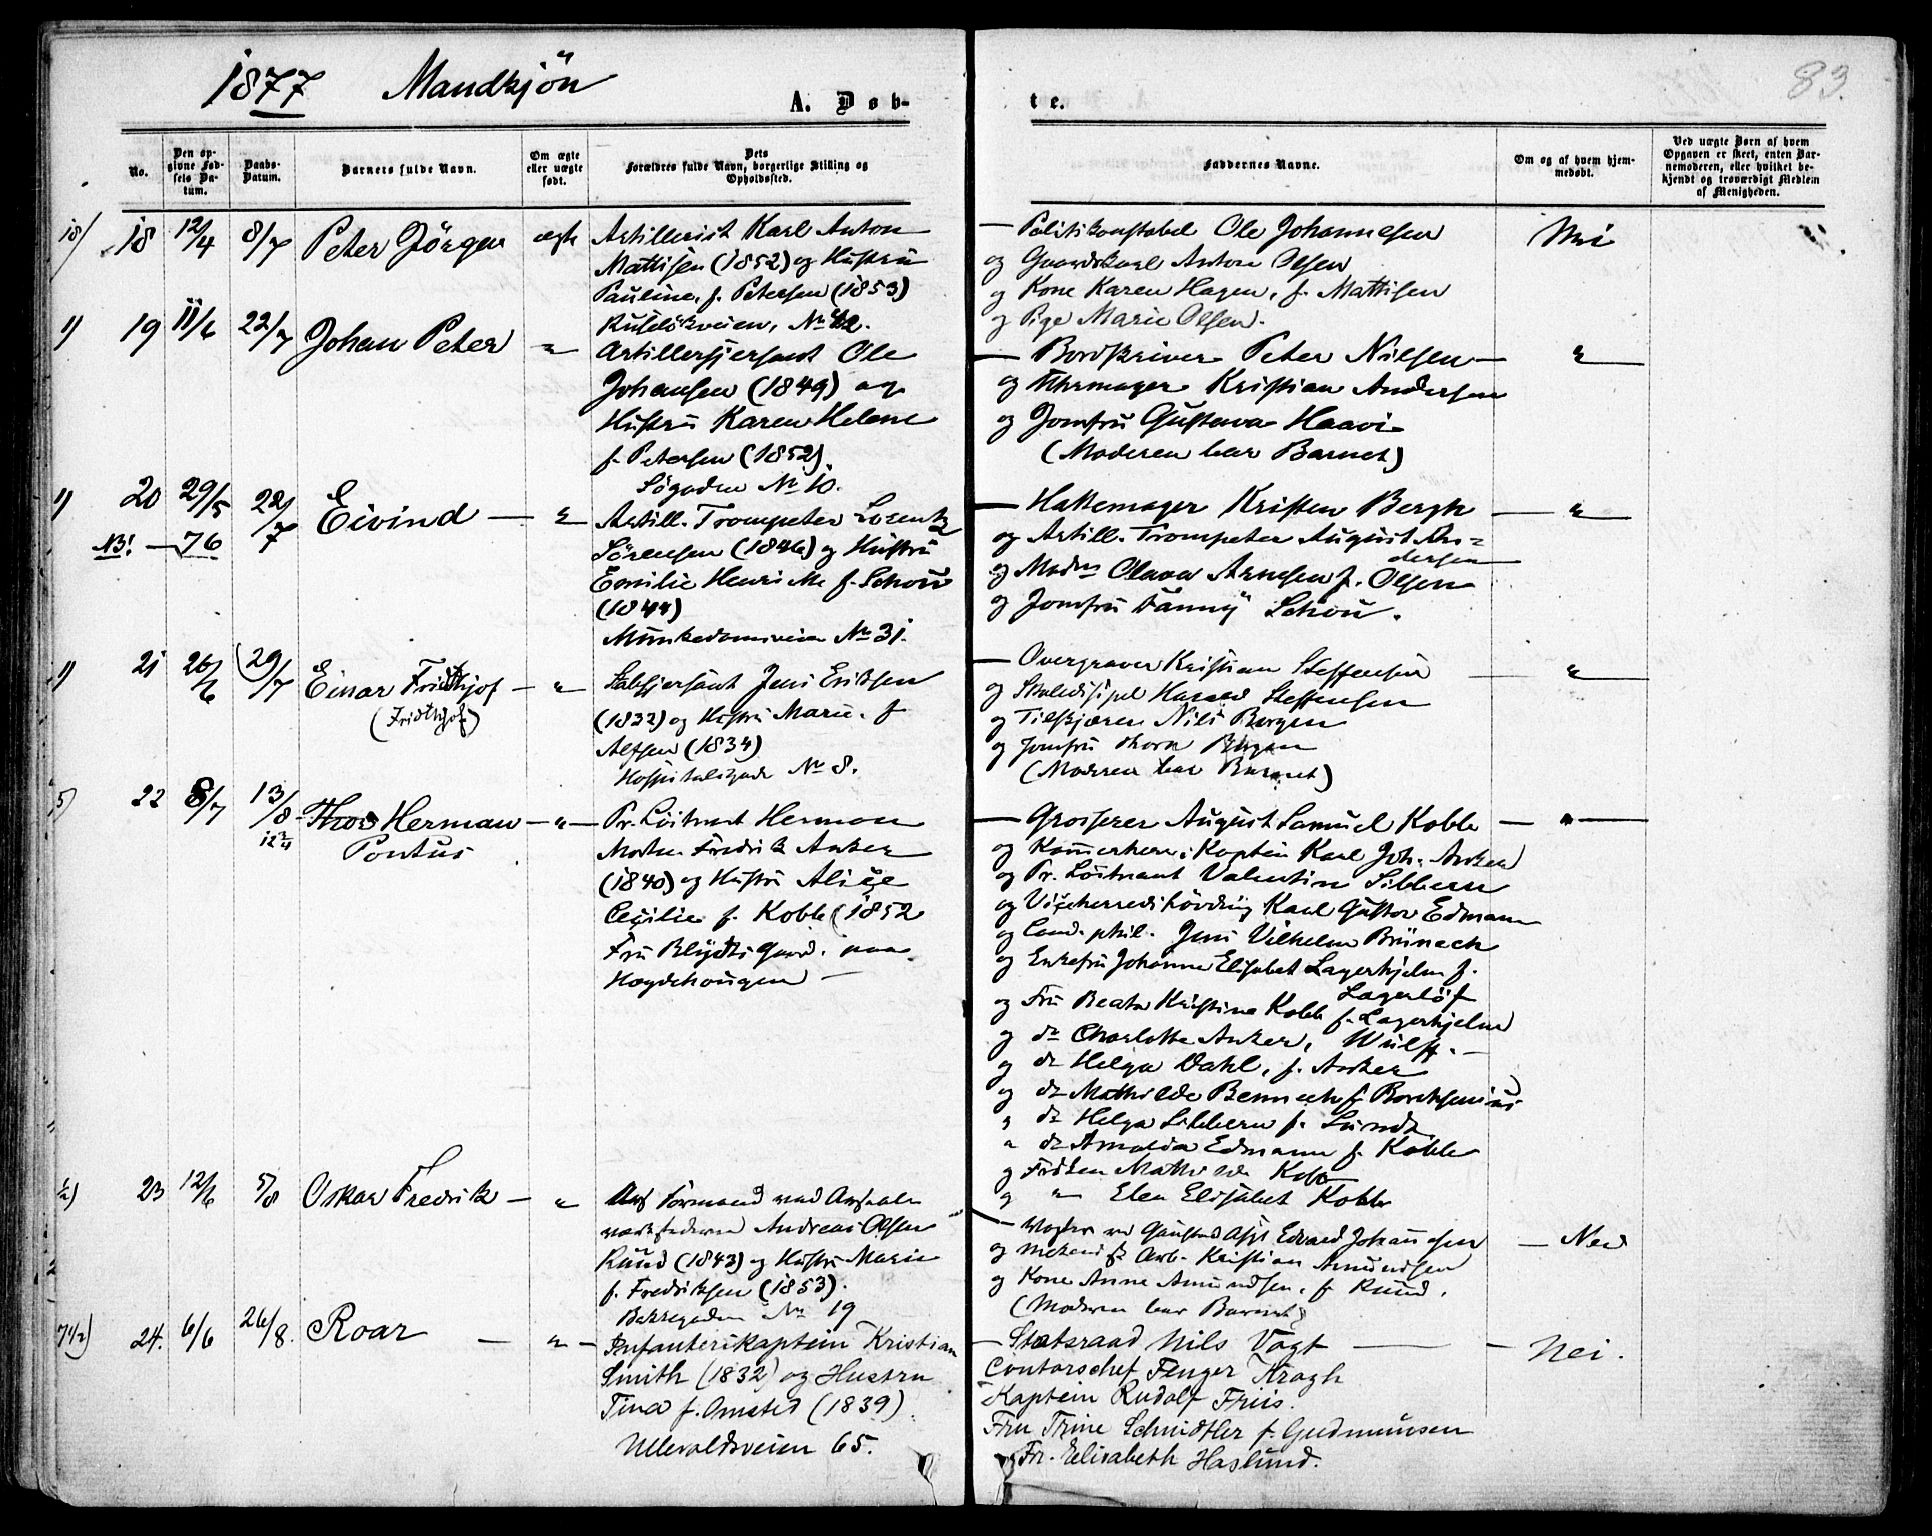 1877 Mandkjön
A. Døb-
te.
83.
No.
Den op-
givne Fød-
sels Da-
tum.
Daabs-
Datum.
Barnets fulde Navn.
Om ægte
eller uægte
født.
Dets
Forældres fulde Navn, borgerlige Stilling og
Opholdssted.
Faddernes Navne.
Om og af hvem hjem-
medøbt.
Ved uægte Børn af hvem
Opgaven er skeet, enten Bar-
nemoderen, eller hvilket be-
kjendt og troværdigt Medlem
af Menigheden.
18 12/4 8/7 Peter Jörgen ægte
Artillerist Karl Anton
Mattisen (1852) og Hustru
Pauline, f. Petersen (1853)
No 42.
— Politikonstabel Ole Johannesen
og Gaardskarl Anton Olsen
og Kone Karen Hagen, f. Mattisen
og Pige Marie Olsen.
Nei
19 11/6 22/7 Johan Peter "
Artillersjersant Ole
Johansen (1849) og
Hustru Karen Helene
f. Petersen (1852)
Sögaden No 10.
— Bordskriver Peter Nilsen —
og Uhrmager Kristian Andersen
og Jomfru Gustava Haavi
(Moderen bar Barnet)
"
20 29/5 22/7 Eivind — "
NB! — 76
Artill. Trompeter Lorentz
Sörensen (1846) og Hustru
Emilie Henrikke f. Schou
(1844)
Munkedamsveien No 31.
— Hattemager Kristen Bergh
og Artill. Trompeter August An=
dersen
og Madm Olava Arnesen f. Olsen
og Jomfru Fanny Schou.
"
21 26/6 (29/7 Einar Fridthjof — "
(Fridthjof)
Stabsjersant Jens Eriksen
(1832) og Hustru Marie f.
Alfsen (1834)
Hospitalsgade No 8.
— Overgraver Kristian Steffensen
og Skoledisipel Harald Steffensen
og Tilskjærer Nils Borgen
og Jomfru Thora Borgen
(Moderen bar Barnet)
"
22 8/7 13/8 Thor Herman — " —
Pontus
Pr. Löitnant Herman
Morten Fredrik Anker
(1840) og Hustru Alice
Cecilie f. Kobb (1852
Fru Blydts Gaard. paa
Hægdehougen —
— Grosserer August Samuel Kobb —
og Kammerherre, Kaptein Karl Joh. Anker
og Pr. Löitnant Valentin Sibbern
og Viceherredshövding Karl Gustav Edman
og Cand. phil. Jens Vilhelm Bünech
og Enkefru Johanna Elisabet Lagerhjelm f.
Lagerlöf
og Fru Beata Kristina Kobb f. Lagerhjelm
og do Charlotte Anker, Wulff. —
og do Helga Dahl, f. Anker
og do Mathilde Bennech f. Borchsenius
" do Helga Sibbern f. Lund
" do Arnolda Edman f. Kobb
og Fröken Mathilde Kobb
og " Elen Elisabet Kobb
23 12/6 5/8 Oskar Fredrik — "
Formand ved
Andreas Olsen
Ruud (1843) og Hustru Marie
f. Fredriksen (1853).
Bakkegaden No 19
— Vogter ved Gaustad Asyl Edvard Johannesen
og Mekanisk Arb. Kristian Amundsen
og Kone Anne Amundsen, f. Ruud.
(Moderen bar Barnet)
— Nei
24. 6/6 26/8. Roar — " —
Infanterikaptein Kristian
Smith (1832) og Hustru
Tina f. Omsted (1839).
Ullevoldsveien 65.
— Statsraad Nils Vogt — —
Contorschef Fenger Kragh
Kaptein Rudolf Friis.
Fru Trine Schnidtler f. Gudmunsen
og Fr. Elisabeth Haslund.
Nei.